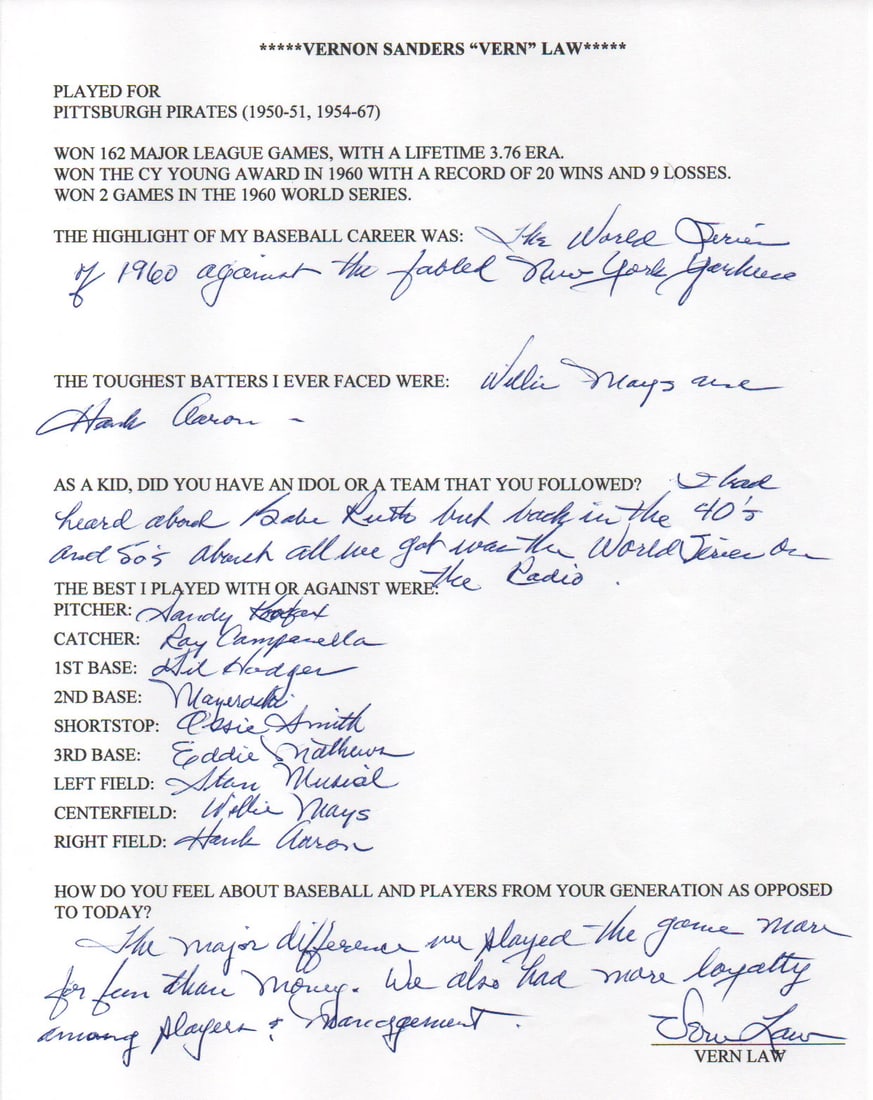 *****VERNON SANDERS “VERN” LAW*****
PLAYED FOR
PITTSBURGH PIRATES (1950-51, 1954-67)
WON 162 MAJOR LEAGUE GAMES, WITH A LIFETIME 3.76 ERA.
WON THE CY YOUNG AWARD IN 1960 WITH A RECORD OF 20 WINS AND 9 LOSSES.
WON 2 GAMES IN THE 1960 WORLD SERIES.
THE HIGHLIGHT OF MY BASEBALL CAREER WAS: The World Series
of 1960 against the fabled New York Yankees
THE TOUGHEST BATTERS I EVER FACED WERE: Willie Mays and
Hank Aaron -
AS A KID, DID YOU HAVE AN IDOL OR A TEAM THAT YOU FOLLOWED? I had
heard about Babe Ruth but back in the 40's
and 50's about all we got was the World Series on
the Radio.
THE BEST I PLAYED WITH OR AGAINST WERE:
PITCHER: Sandy Koofax
CATCHER: Roy Campanella
1ST BASE: Gil Hodges
2ND BASE: Mazeroski
SHORTSTOP: Ossie Smith
3RD BASE: Eddie Mathews
LEFT FIELD: Stan Musial
CENTERFIELD: Willie Mays
RIGHT FIELD: Hank Aaron
HOW DO YOU FEEL ABOUT BASEBALL AND PLAYERS FROM YOUR GENERATION AS OPPOSED
TO TODAY?
The major difference we played the game more
for fun than money. We also had more loyalty
among players & management.
Vern Law
VERN LAW